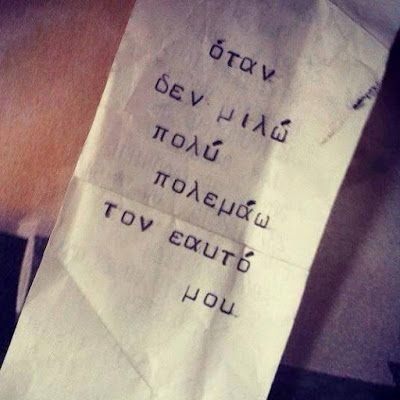 όταν
δεν μιλώ
πολύ
πολεμάω
τον εαυτό
μου